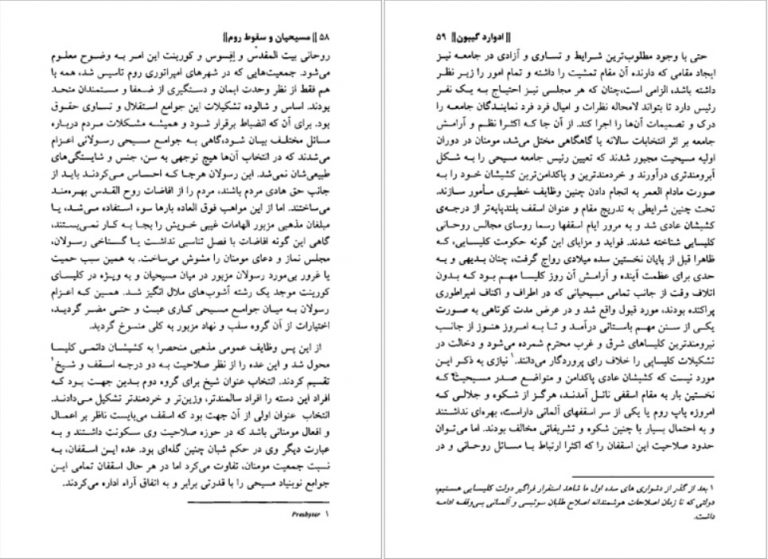 ۵۸ || مسیحیان و سقوط روم ||
روحانی بیت المقدّس و اِفِسوس و کورینت این امر به وضوح معلوم
می‌شود. جمعیت‌هایی که در شهرهای امپراتوری روم تاسیس شد، همه با
هم فقط از نظر وحدت ایمان و دستگیری از ضعفا و مستمندان متحد
بودند. اساس و شالوده تشکیلات این جوامع استقلال و تساوی حقوق
بود. برای آن که انضباط برقرار شود و همیشه مشکلات مردم درباره
مسائل مختلف بیان شود،گاهی به جوامع مسیحی رسولانی اعزام
می‌شدند که در انتخاب آن‌ها هیچ توجهی به سن، جنس و شایستگی‌های
طبیعی‌شان نمی‌شد. این رسولان هرجا که احساس می‌کردند باید از
جانب حق هادی مردم باشند، مردم را از افاضات روح القدس بهره‌مند
می‌ساختند. اما از این مواهب فوق العاده بارها سوء استفاده می‌شد، یا
مبلغان مذهبی مزبور الهامات غیبی خویش را بجا به کار نمی‌بستند،
گاهی این گونه افاضات با فصل تناسبی نداشت یا گستاخی رسولان،
مجلس نماز و دعای مومنان را مشوش می‌ساخت. به همین سبب حمیت
یا غرور بی‌مورد رسولان مزبور در میان مسیحیان و به ویژه در کلیسای
کورینت موجد یک رشته آشوب‌های ملال انگیز شد. همین که اعزام
رسولان به میان جوامع مسیحی کاری عبث و حتی مضر گردید،
اختیارات از آن گروه سلب و نهاد مزبور به کلی منسوخ گردید.
از این پس وظایف عمومی مذهبی منحصرا به کشیشان دائمی کلیسا
محول شد و این عده را از نظر صلاحیت به دو درجه اسقف و شیخ۱
تقسیم کردند. انتخاب عنوان شیخ برای گروه دوم بدین جهت بود که
افراد این دسته را افراد سالمندتر، وزین‌تر و خردمندتر تشکیل می‌دادند.
انتخاب عنوان اولی از آن جهت بود که اسقف می‌بایست ناظر بر اعمال
و افعال مومنانی باشد که در حوزه صلاحیت وی سکونت داشتند و به
عبارت دیگر وی در حکم شبان چنین گله‌ای بود. عده این اسقفان، به
نسبت جمعیت مومنان، تفاوت می‌کرد اما در هر حال اسقفان تمامی این
جوامع نوبنیاد مسیحی را با قدرتی برابر و به اتفاق آراء اداره می‌کردند.
۱ Presbyter
|| ادوارد گیبون || ۵۹
حتی با وجود مطلوب‌ترین شرایط و تساوی و آزادی در جامعه نیز
ایجاد مقامی که دارنده آن مقام تمشیت را داشته و تمام امور را زیر نظر
داشته باشد، الزامی است،چنان که هر مجلسی نیز احتیاج به یک نفر
رئیس دارد تا بتواند لامحاله نظرات و امیال فرد فرد نمایندگان جامعه را
درک و تصمیمات آن‌ها را اجرا کند. از آن جا که اکثرا نظم و آرامش
جامعه بر اثر انتخابات سالانه یا گاهگاهی مختل می‌شد، مومنان در دوران
اولیه مسیحیت مجبور شدند که تعیین رئیس جامعه مسیحی را به شکل
آبرومندتری درآورند و خردمندترین و پاکدامن‌ترین کشیشان خود را به
صورت مادام العمر به انجام دادن چنین وظایف خطیری مأمور سازند.
تحت چنین شرایطی به تدریج مقام و عنوان اسقف بلندپایه‌تر از درجه‌ی
کشیشان عادی شد و به مرور ایام اسقفها رسما روسای مجالس روحانی
کلیسایی شناخته شدند. فواید و مزایای این گونه حکومت کلیسایی، که
ظاهرا قبل از پایان نخستین سده میلادی رواج گرفت، چنان بدیهی و به
حدی برای عظمت آینده و آرامش آن روز کلیسا مهم بود که بدون
اتلاف وقت از جانب تمامی مسیحیانی که در اطراف و اکناف امپراطوری
پراکنده بودند، مورد قبول واقع شد و در عرض مدت کوتاهی به صورت
یکی از سنن مهم باستانی درآمد و تا به امروز هنوز از جانب
نیرومندترین کلیساهای شرق و غرب محترم شمرده می‌شود و دخالت در
تشکیلات کلیسایی را خلاف رای پروردگار می‌دانند.۱ نیازی به ذکر این
مورد نیست که کشیشان عادی پاکدامن و متواضع صدر مسیحیت که
نخستین بار به مقام اسقفی نائل آمدند، هرگز از شکوه و جلالی که
امروزه پاپ روم یا یکی از سر اسقفهای آلمانی داراست، بهره‌ای نداشتند
و به احتمال بسیار با چنین شکوه و تشریفاتی مخالف بودند. اما می‌توان
حدود صلاحیت این اسقفان را که اکثرا ارتباط با مسائل روحانی و در
۱ بعد از گذر از دشواری های سده اول ما شاهد استقرار فراگیر دولت کلیسایی هستیم،
دولتی که تا زمان اصلاحات هوشمندانه اصلاح طلبان سوئیسی و آلمانی بی‌وقفه ادامه
داشت.